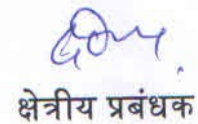 क्षेत्रीय प्रबंधक